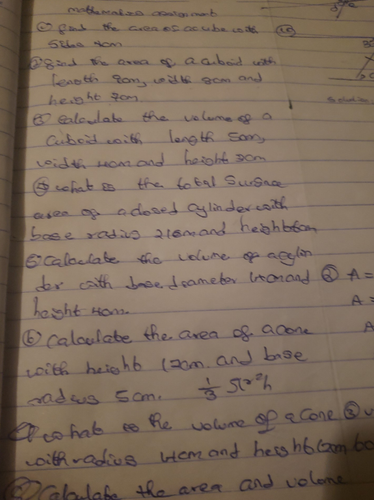 mathematics assignment
① find the area of a cube with
② find the area of a cuboid with
length 8cm, width
height
③ Calculate the volume of a
cuboid with length 5cm,
width 4cm and height
④ what is the total surface
area of a closed cylinder with
base radius and height 6cm
⑤ Calculate the volume of a cylin
der with base diameter and
height 4cm
⑥ Calculate the area of a cone
with height 12cm and base
radius 5cm. 1/3 πr²h
what is the volume of a cone
with radius 4cm and height
Calculate the area and volume
② A =
A =
A
③